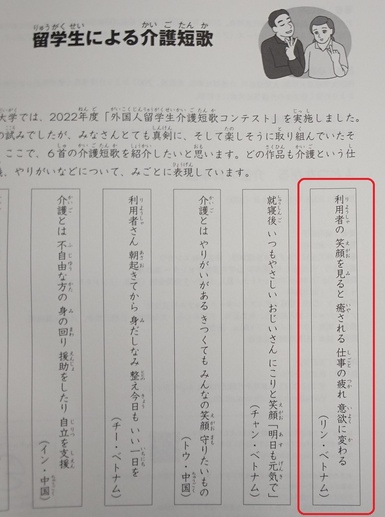 留学生による介護短歌
大学では、2022年度「外国人留学生介護短歌コンテスト」を実施しました。
の試みでしたが、みなさんとても真剣に、そして楽しそうに取り組んでいたそ
ここで、6首の介護短歌を紹介したいと思います。どの作品も介護という仕
、やりがいなどについて、みごとに表現しています。
利用者の 笑顔を見ると 癒される 仕事の疲れ 意欲に変わる
(リン・ベトナム)
就寝後 いつもやさしい おじいさん にこりと笑顔「明日も元気で」
(チャン・ベトナム)
介護とは やりがいがある きつくても みんなの笑顔 守りたいもの
(トウ・中国)
利用者さん 朝起きてから 身だしなみ 整え今日も いい一日を
(チー・ベトナム)
介護とは 不自由な方の 身の回り 援助をしたり 自立を支援
(イン・中国)